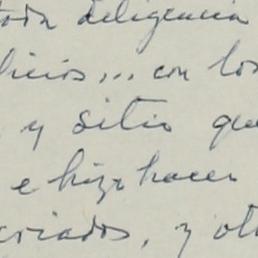 toda diligencia
licios... con los
y sitio que
e hizo hacer
criados, y ot